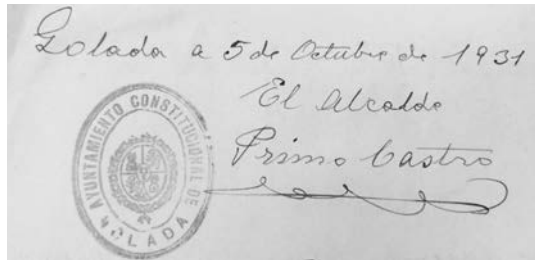 Golada a 5 de Octubre de 1931
El Alcalde
Primo Castro
AYUNTAMIENTO CONSTITUCIONAL DE
GOLADA